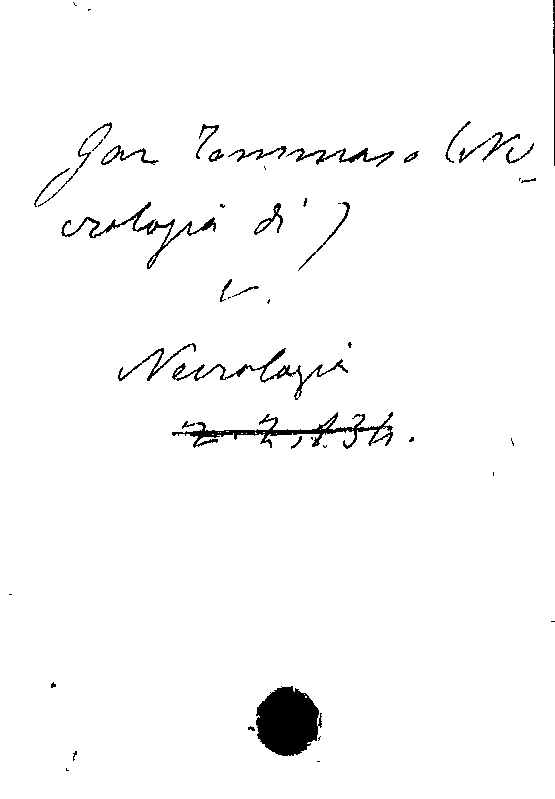 Gar Tommaso (Ne-
crologia di)
v.
Necrologia